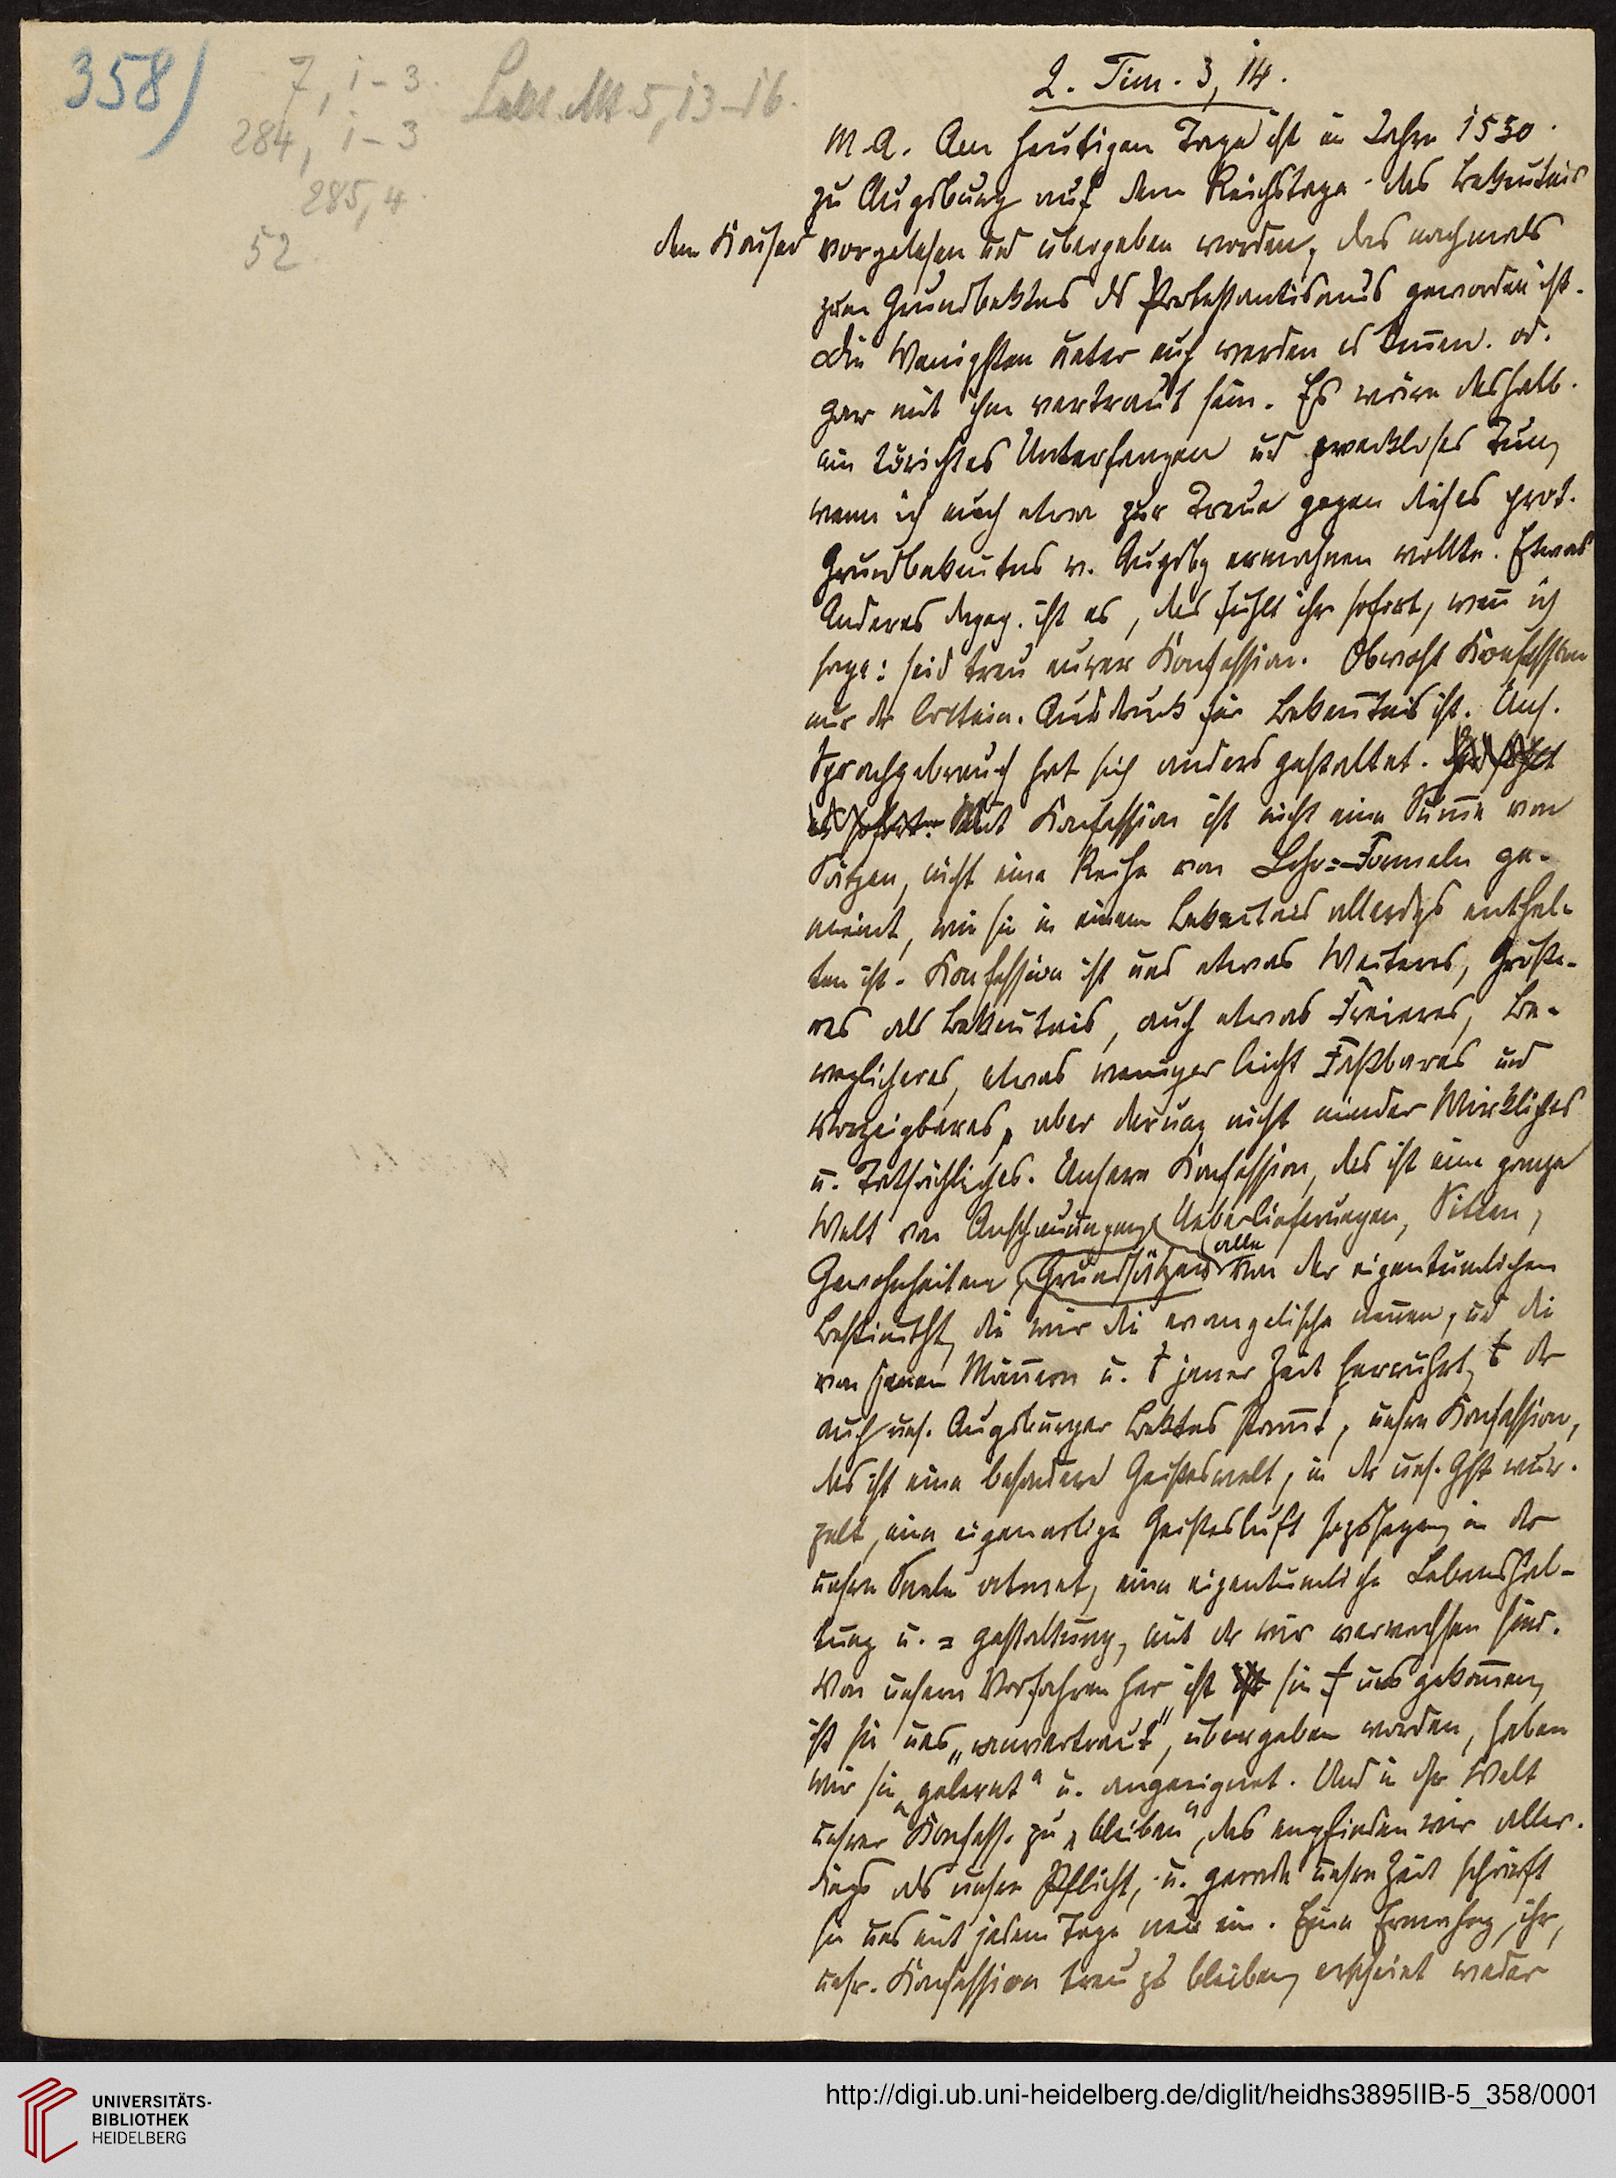 358)
7, 1-3.
284, 1-3
285, 4.
52.
Lekt. Mt 5, 13-16.
2. Tim. 3, 14.
M. A. Am heutigen Tage ist im Jahre 1530
zu Augsburg auf dem Reichstage das Bekentnis
dem Kaiser vorgelesen und übergeben worden, das nachmals
zum Grundbektns ds Protestantismus geworden ist.
Die Wenigsten unter euch werden es kennen. od.
gar mit ihm vertraut sein. Es wäre deshalb
ein törichtes Unterfangen ud zweckloses Tun,
wenn ich euch etwa zur Treue gegen dieses prot.
Grundbekentns v. Augsbg ermahnen wollte. Etwas
Anderes dageg. ist es, das fühlt ihr sofort, wenn ich
sage: seid treu eurer Konfession. Obwohl Konfession
nur dr latein. Ausdruck für Bekenntnis ist. Uns.
Sprachgebrauch hat sich anders gestaltet.
Mit Konfession ist nicht eine Summe von
Sätzen, nicht eine Reihe von Lehr=Formeln ge-
meint, wie sie in einem Bekentnis allerdgs enthal-
ten ist. Konfession ist uns etwas Weiteres, Größe-
res als Bekentnis, auch etwas Freieres, Be-
weglicheres, etwas weniger leicht Faßbares und
Vorzeigbares, aber darum nicht minder Wirkliches
u. Tatsächliches. Unsere Konfession, das ist eine ganze
Welt von Anschauungen, Ueberlieferungen, Sitten,
Gewohnheiten, Grundsätzen alle von der eigentümlichen
Bestimtht, die wir die evangelische nennen, ud die
von jenen Männern u. jener Zeit herrührt, dr
auch uns. Augsburger Bektns stammt, unsere Konfession,
das ist eine besondere Geisteswelt, in dr uns. Gst wur-
zelt, eine eigenartige Geistesluft sozusagen, in der
unsere Seele atmet, eine eigentümliche Lebenshal-
tung u. = gestaltung, mit dr wir verwachsen sind.
Von unsern Vorfahren her ist sie uns gekommen,
ist sie uns „anvertraut", übergeben worden, haben
wir sie „gelernt" u. angeeignet. Und in dsr Welt
unsrer Konfess. zu „bleiben", das empfinden wir aller-
dings als unsere Pflicht, u. gerade unsere Zeit schärft
sie uns mit jedem Tage neu ein. Eine Ermahng, ihr,
unsr. Konfession treu zu bleiben, erscheint weder
UNIVERSITÄTS-
BIBLIOTHEK
HEIDELBERG
http://digi.ub.uni-heidelberg.de/diglit/heidhs3895IIB-5_358/0001